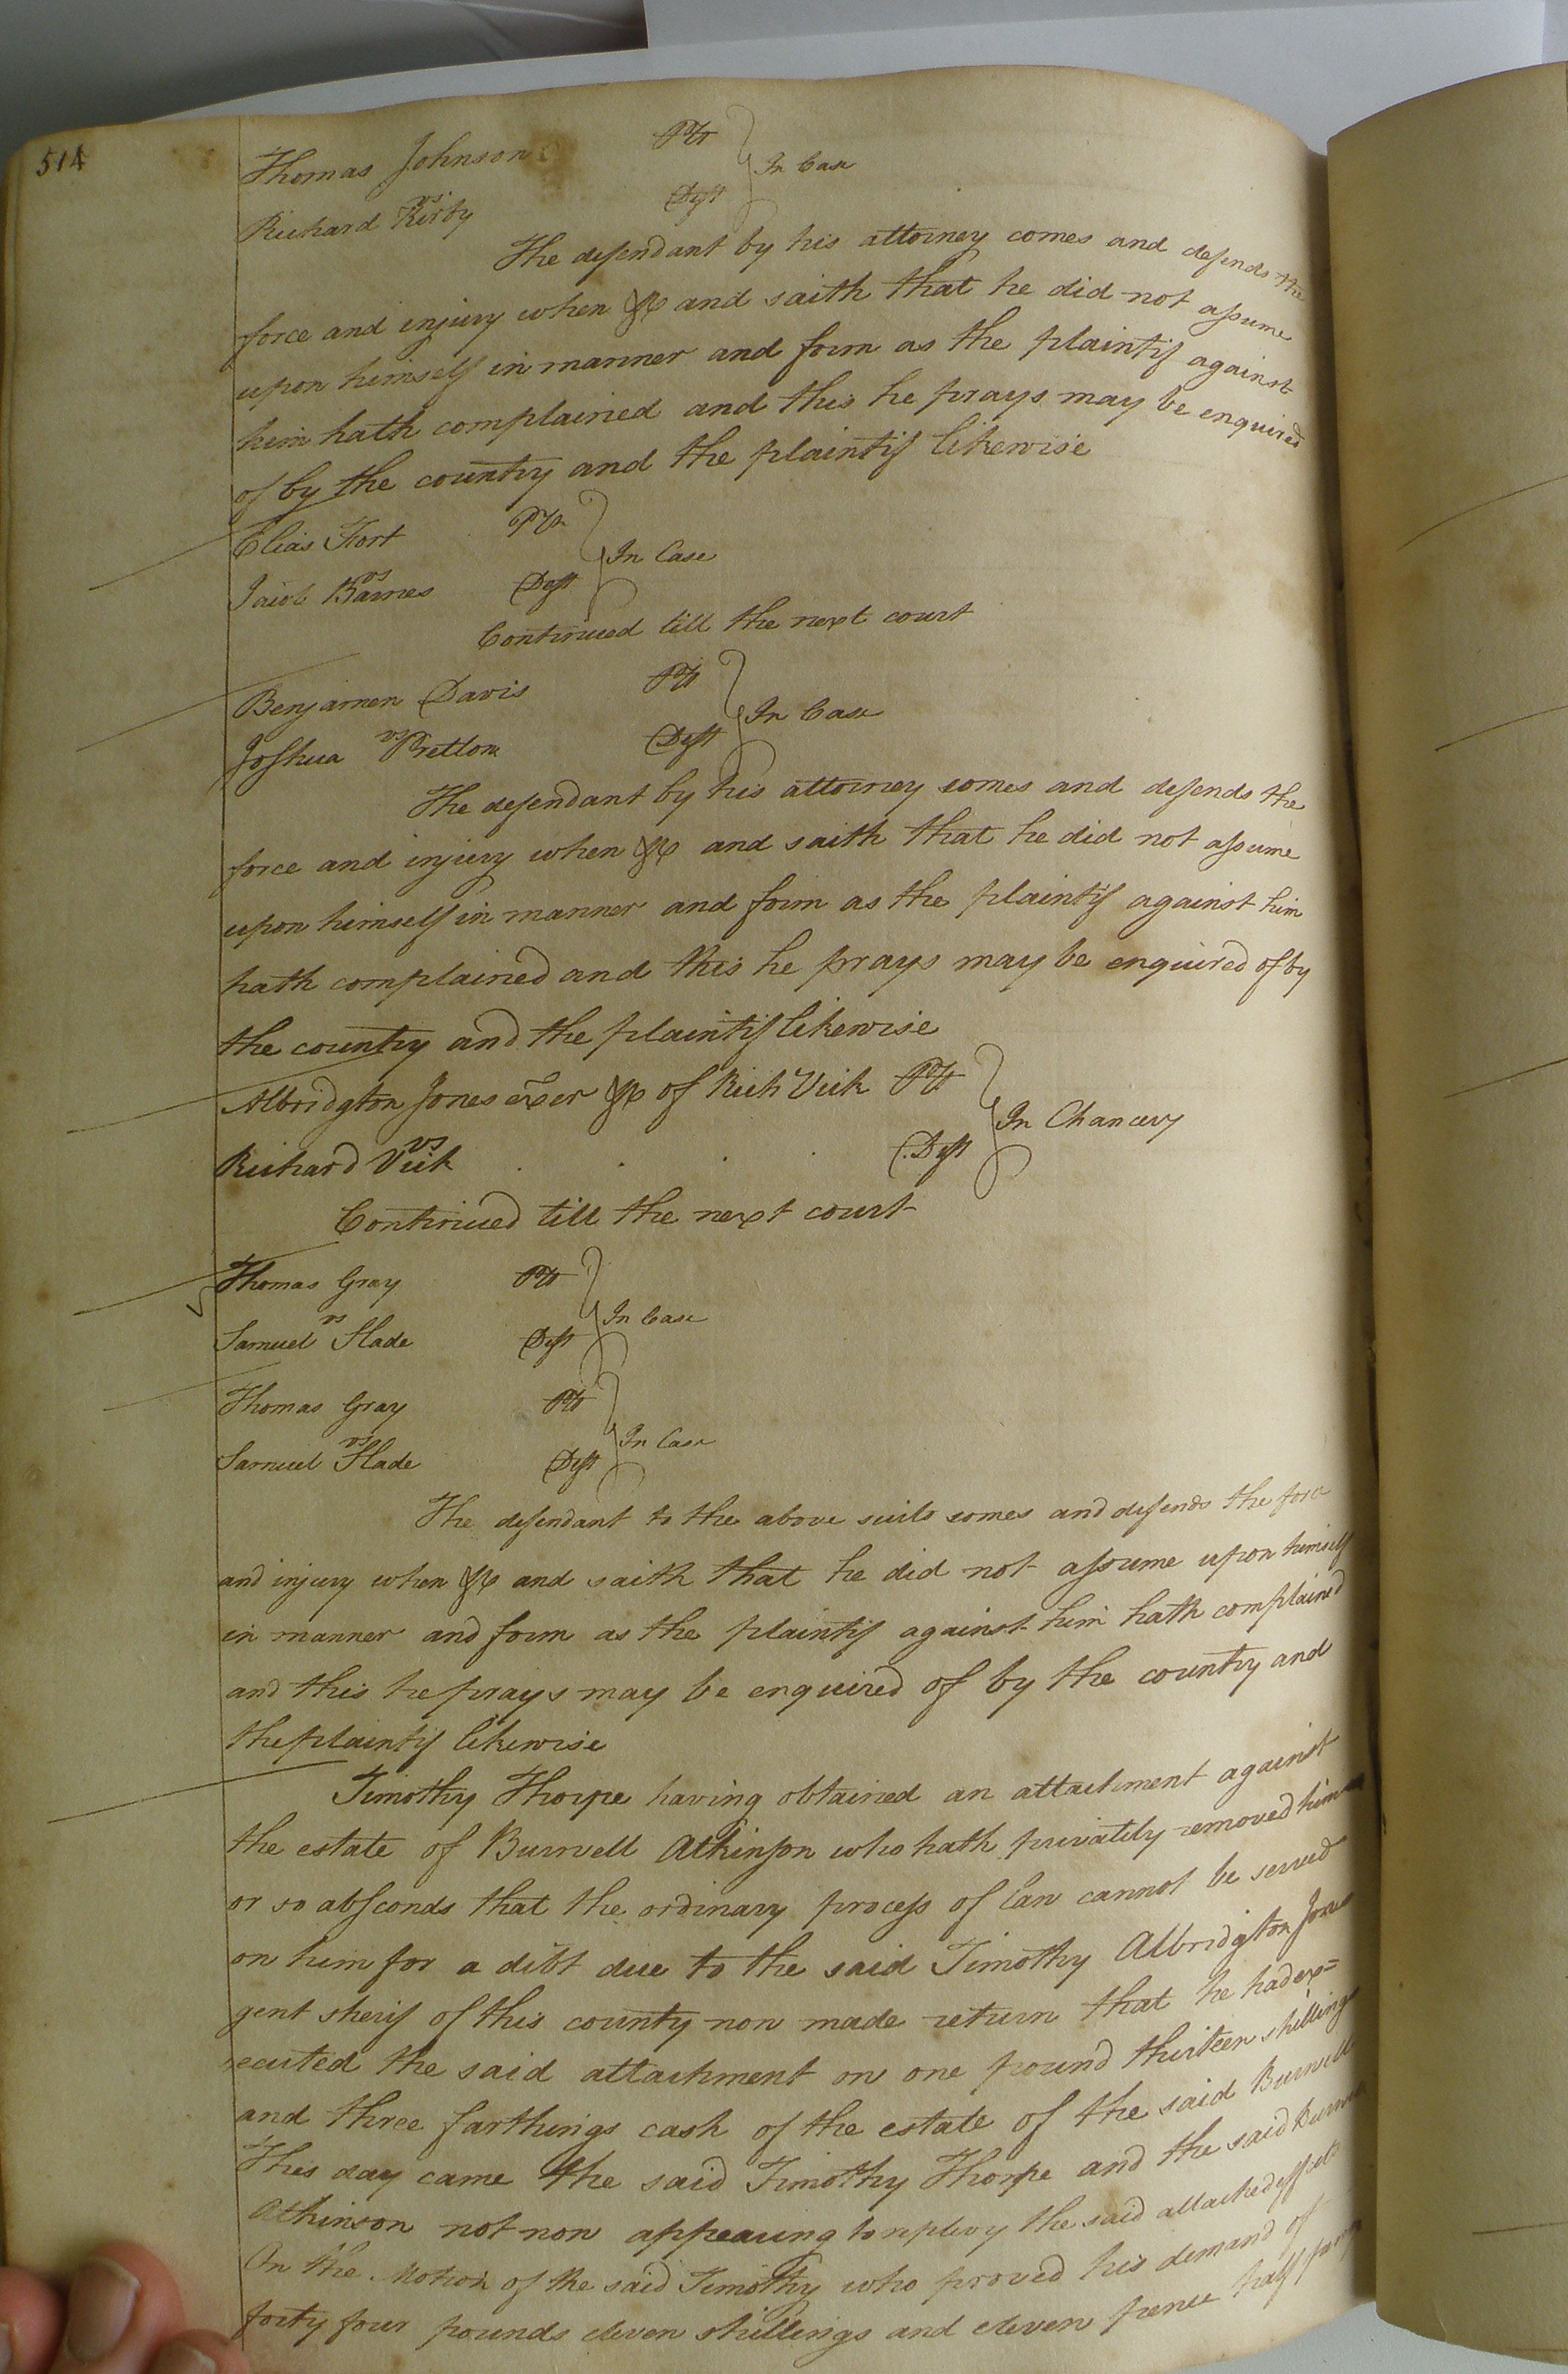 514
Thomas Johnson Plt
vs In Case
Richard Kirby Deft
The defendant by his attorney comes and defends the
force and injury when &c and saith that he did not assume
upon himself in manner and form as the plaintif against
him hath complained and this he prays may be enquired
of by the country and the plaintif likewise
Elias Fort Plt
vs In Case
Jacob Barnes Deft
Continued till the next court
Benjamen Davis Plt
vs In Case
Joshua Pretlow Deft
The defendant by his attorney comes and defends the
force and injury when &c and saith that he did not assume
upon himself in manner and form as the plaintif against him
hath complained and this he prays may be enquired of by
the country and the plaintif likewise
Albridgton Jones exer &c of Rich Vick Plt
vs In Chancery
Richard Vick Deft
Continued till the next court
Thomas Gray Plt
vs In Case
Samuel Slade Deft
Thomas Gray Plt
vs In Case
Samuel Slade Deft
The defendant to the above suits comes and defends the force
and injury when &c and saith that he did not assume upon himself
in manner and form as the plaintif against him hath complained
and this he prays may be enquired of by the country and
the plaintif likewise
Timothy Thorpe having obtained an attachment against
the estate of Burwell Atkinson who hath privately removed
or so absconds that the ordinary process of law cannot be served
on him for a debt due to the said Timothy Albridgton Jones
gent sherif of this county now made return that he had ex=
ecuted the said attachment on one pound thirteen shillings
and three farthings cash of the estate of the said Burwell
This day came the said Timothy Thorpe and the said Burwell
Atkinson not now appearing to replevy the said attached effects
On the Motion of the said Timothy who proved his demand of
forty four pounds eleven shillings and eleven pence half